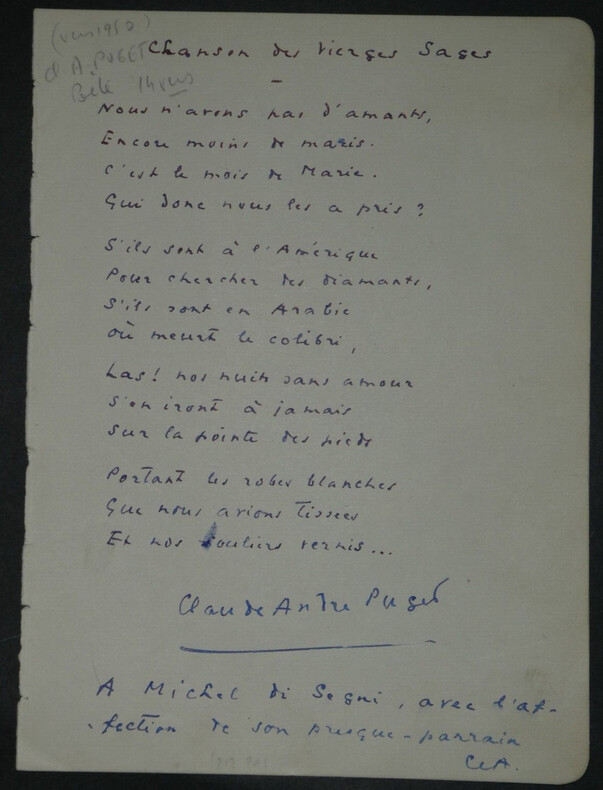 (vers 1952)
Cl A. PUGET
Belle 14 vers
Chanson des Vierges Sages
Nous n'avons pas d'amants,
Encore moins de maris.
C'est le mois de Marie.
Qui donc nous les a pris ?
S'ils sont à l'Amérique
Pour chercher des diamants,
S'ils sont en Arabie
Où meurt le colibri,
Las ! nos nuits sans amour
S'en iront à jamais
Sur la pointe des pieds
Portant les robes blanches
Que nous avions tissées
Et nos souliers vernis...
Claude André Puget
A Michel di Segni, avec l'af-
-fection de son presque-parrain
C.A.